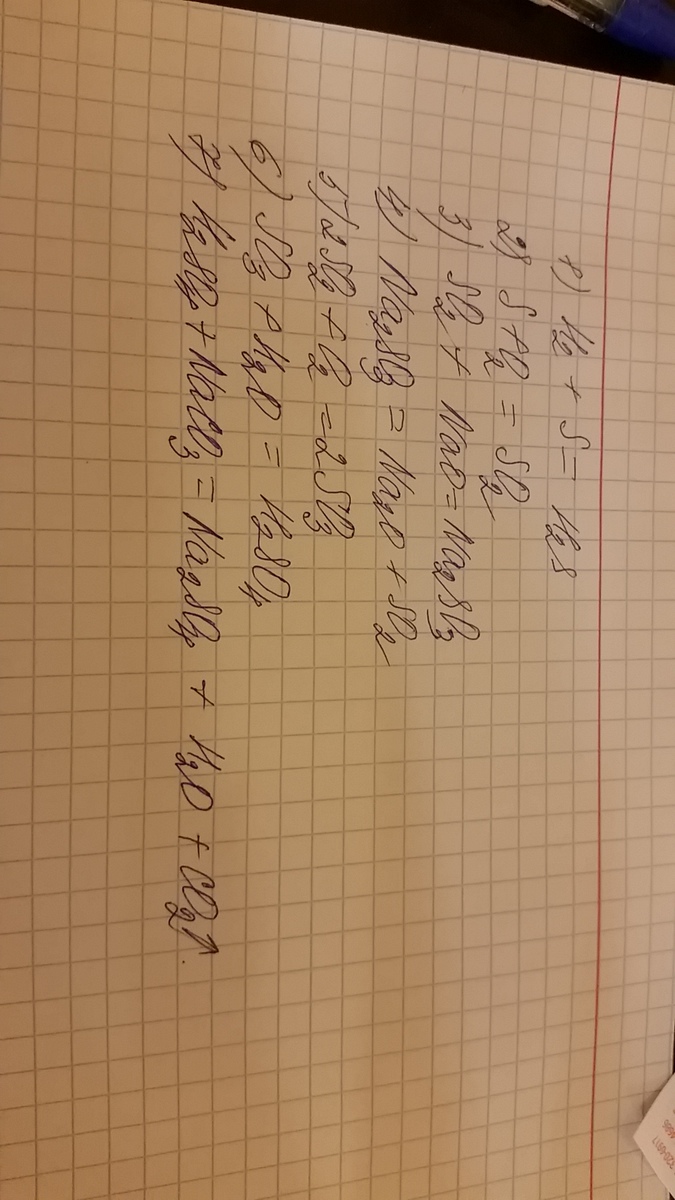 1) H₂ + S = H₂S
2) S + O₂ = SO₂
3) SO₂ + NaO = Na₂SO₃
4) Na₂SO₃ = Na₂O + SO₂
5) 2SO₂ + O₂ = 2SO₃
6) SO₃ + H₂O = H₂SO₄
7) H₂SO₄ + NaCO₃ = Na₂SO₄ + H₂O + CO₂↑.